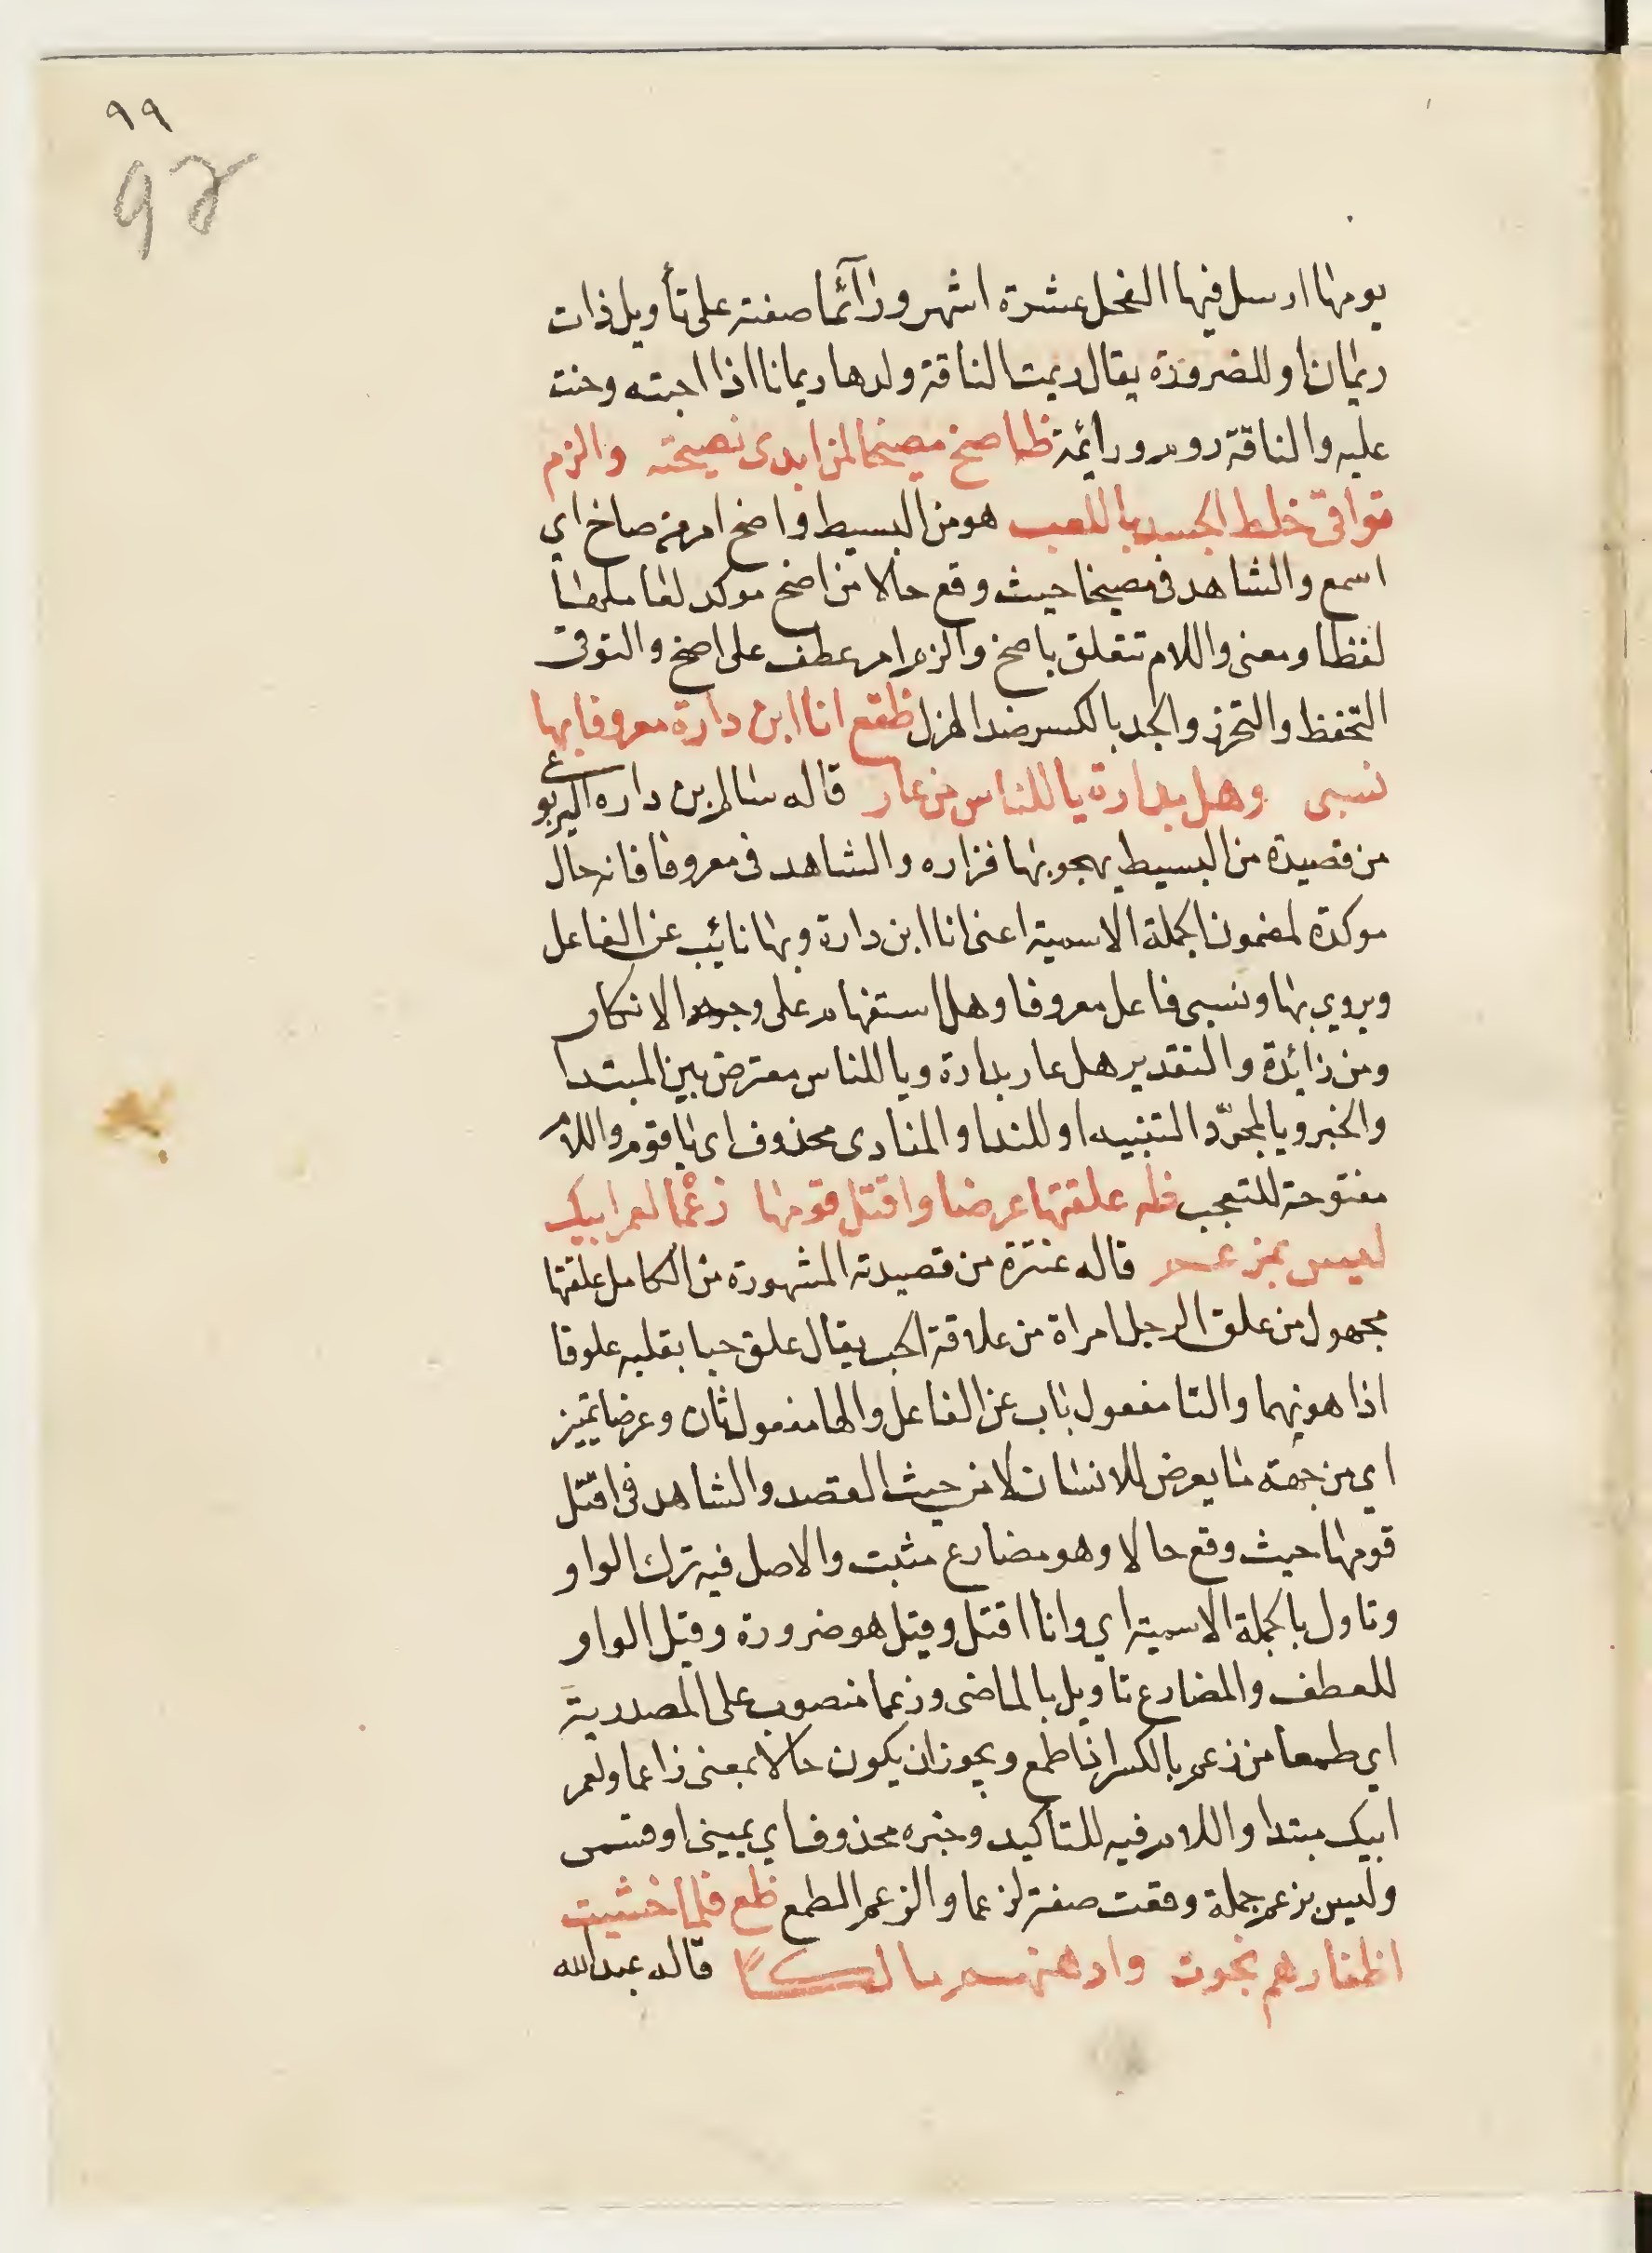 ٩٩
يومها ارسل فيها الفحل عشرة اشهر ورآئما صفته على تأويل ذات
ريمان او للضرورة يقال ريمت الناقة ولدها ريمانا اذا احبته وحنت
عليه والناقة روم ورائمة ظا اصخ مصيخا لمن ابدى نصيحته والزم
توافي خلط الجد باللعب هو من البسيط واصخ امر من صاخ اي
اسمع والشاهد في مصيخا حيث وقع حالا من اصخ موكد لعاملها
لفظا ومعنى واللام تتعلق باصخ والزم امر عطف على اصخ والتوقى
التحفظ والتحرز والجد بالكسر ضد الهزل ظقع انا ابن دارة معروفا بها
نسبى وهل بدارة يا للناس من عار قاله سالم بن داره اليربوع
من قصيدة من البسيط يهجو بها فزاره والشاهد فى معروفا فانه حال
موكدة لمضمون الجملة الاسمية اعنى انا ابن دارة وبها نائب عن الفاعل
ويروي بها ونسبى فاعل معروفا وهل استفهام على وجه الانكار
ومن زائدة والتقدير هل عار بدارة ويا للناس معترض بين المبتدا
والخبر ويا لمجرّد التنبيه او للندا والمنادى محذوف اى يا قوم واللام
مفتوحة للتعجب ظه علقتها عرضا واقتل قومها زعْما لعمر ابيك
ليس بمزعم قاله عنترة من قصيدته المشهورة من الكامل علقتها
مجهول من علق الرجل امراة من علاقة الحب يقال علق حبا بقلبه علوقا
اذا هويها والتا مفعول ناب عن الفاعل والها مفعول ثان وعرضا تمييز
اي من جهة ما يعرض للانسان لا من حيث القصد والشاهد فى اقتل
قومها حيث وقع حالا وهو مضارع مثبت والاصل فيه ترك الواو
وتاول بالجملة الاسمية اي وانا اقتل وقيل هو ضرورة وقيل الواو
للعطف والمضارع تاويل بالماضى وزعما منصوب على المصدرية
اي طمعا من زعم بالكسر اذا طمع ويجوز ان يكون حالا بمعنى زاعما ولعمر
ابيك مبتدا واللام فيه للتاكيد وخبره محذوف اي يمينى او قسمى
وليس بزعم جملة وقعت صفة لزعما والزعم الطمع ظع فلما خشيت
اظفارهم نجوت وارهنهم مالكًا قاله عبدالله